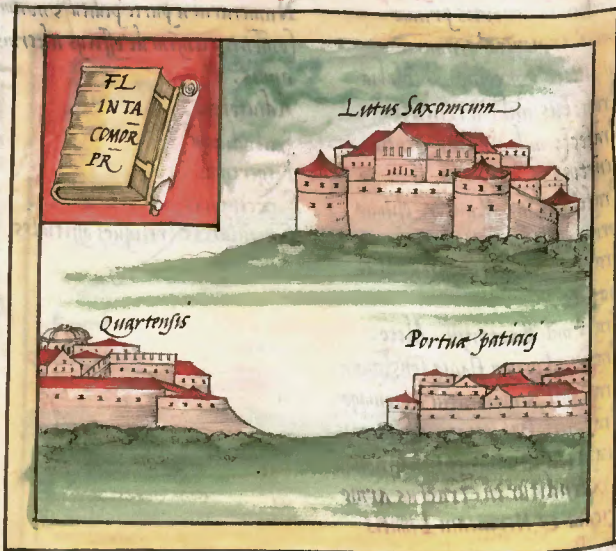 FL
INTA
COMOR
PR
Litus Saxonicum
Quartensis
Portuæ patiaci